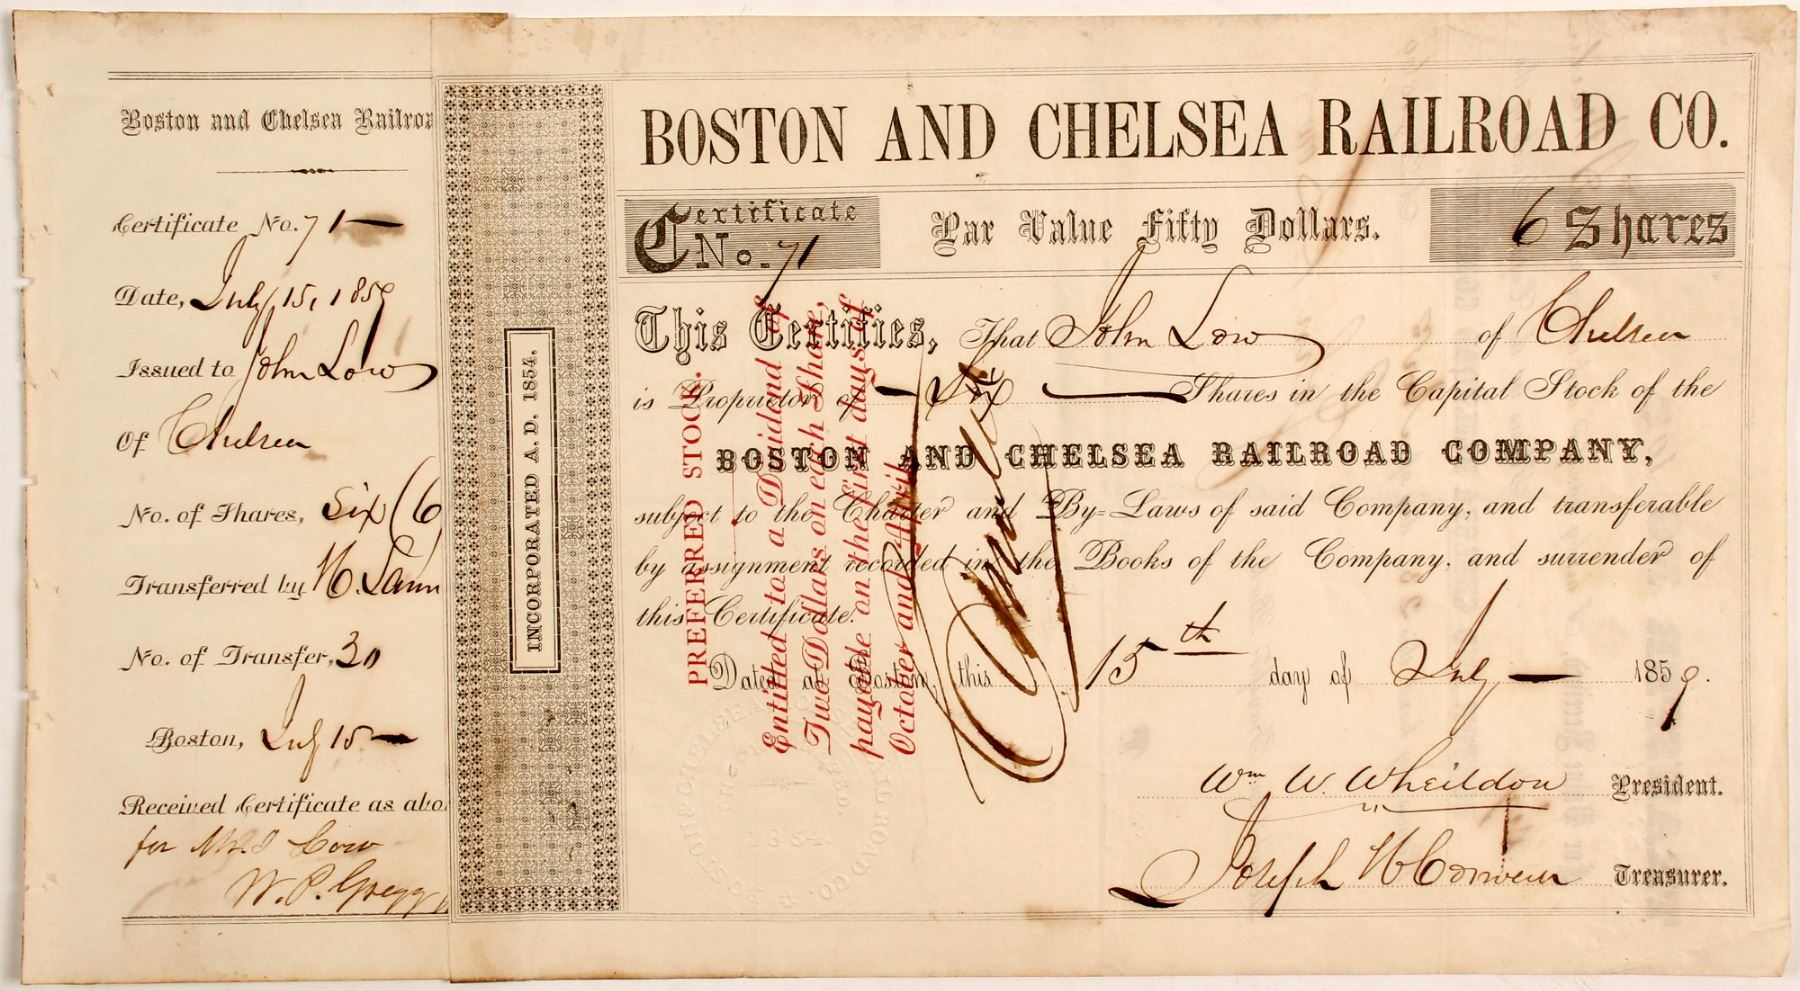 Boston and Chelsea Railroa
Certificate No. 71
Date, July 15, 1859
Issued to John Low
Of Chelsea
No. of Shares, Six (6
Transferred by
No. of Transfer, 30
Boston, July 15
Received Certificate as abo
for Low
W. P. Gregg
INCORPORATED A. D. 1854.
BOSTON AND CHELSEA RAILROAD CO.
Certificate No. 71
Par Value Fifty Dollars.
6 Shares
This Certifies, That John Low of Chelsea
is Proprietor of Six Shares in the Capital Stock of the
BOSTON AND CHELSEA RAILROAD COMPANY,
subject to the Charter and By=Laws of said Company, and transferable
by assignment recorded in the Books of the Company, and surrender of
this Certificate.
Dated at Boston, this 15th day of July 1859.
Wm W. Wheildon President.
Joseph Treasurer.
PREFERRED STOCK.
Entitled to a Dividend of
Two Dollars on each Share,
payable on the first days of
October and April
Cancelled
BOSTON & CHELSEA RAILROAD CO.
INCORPORATED.
1854.